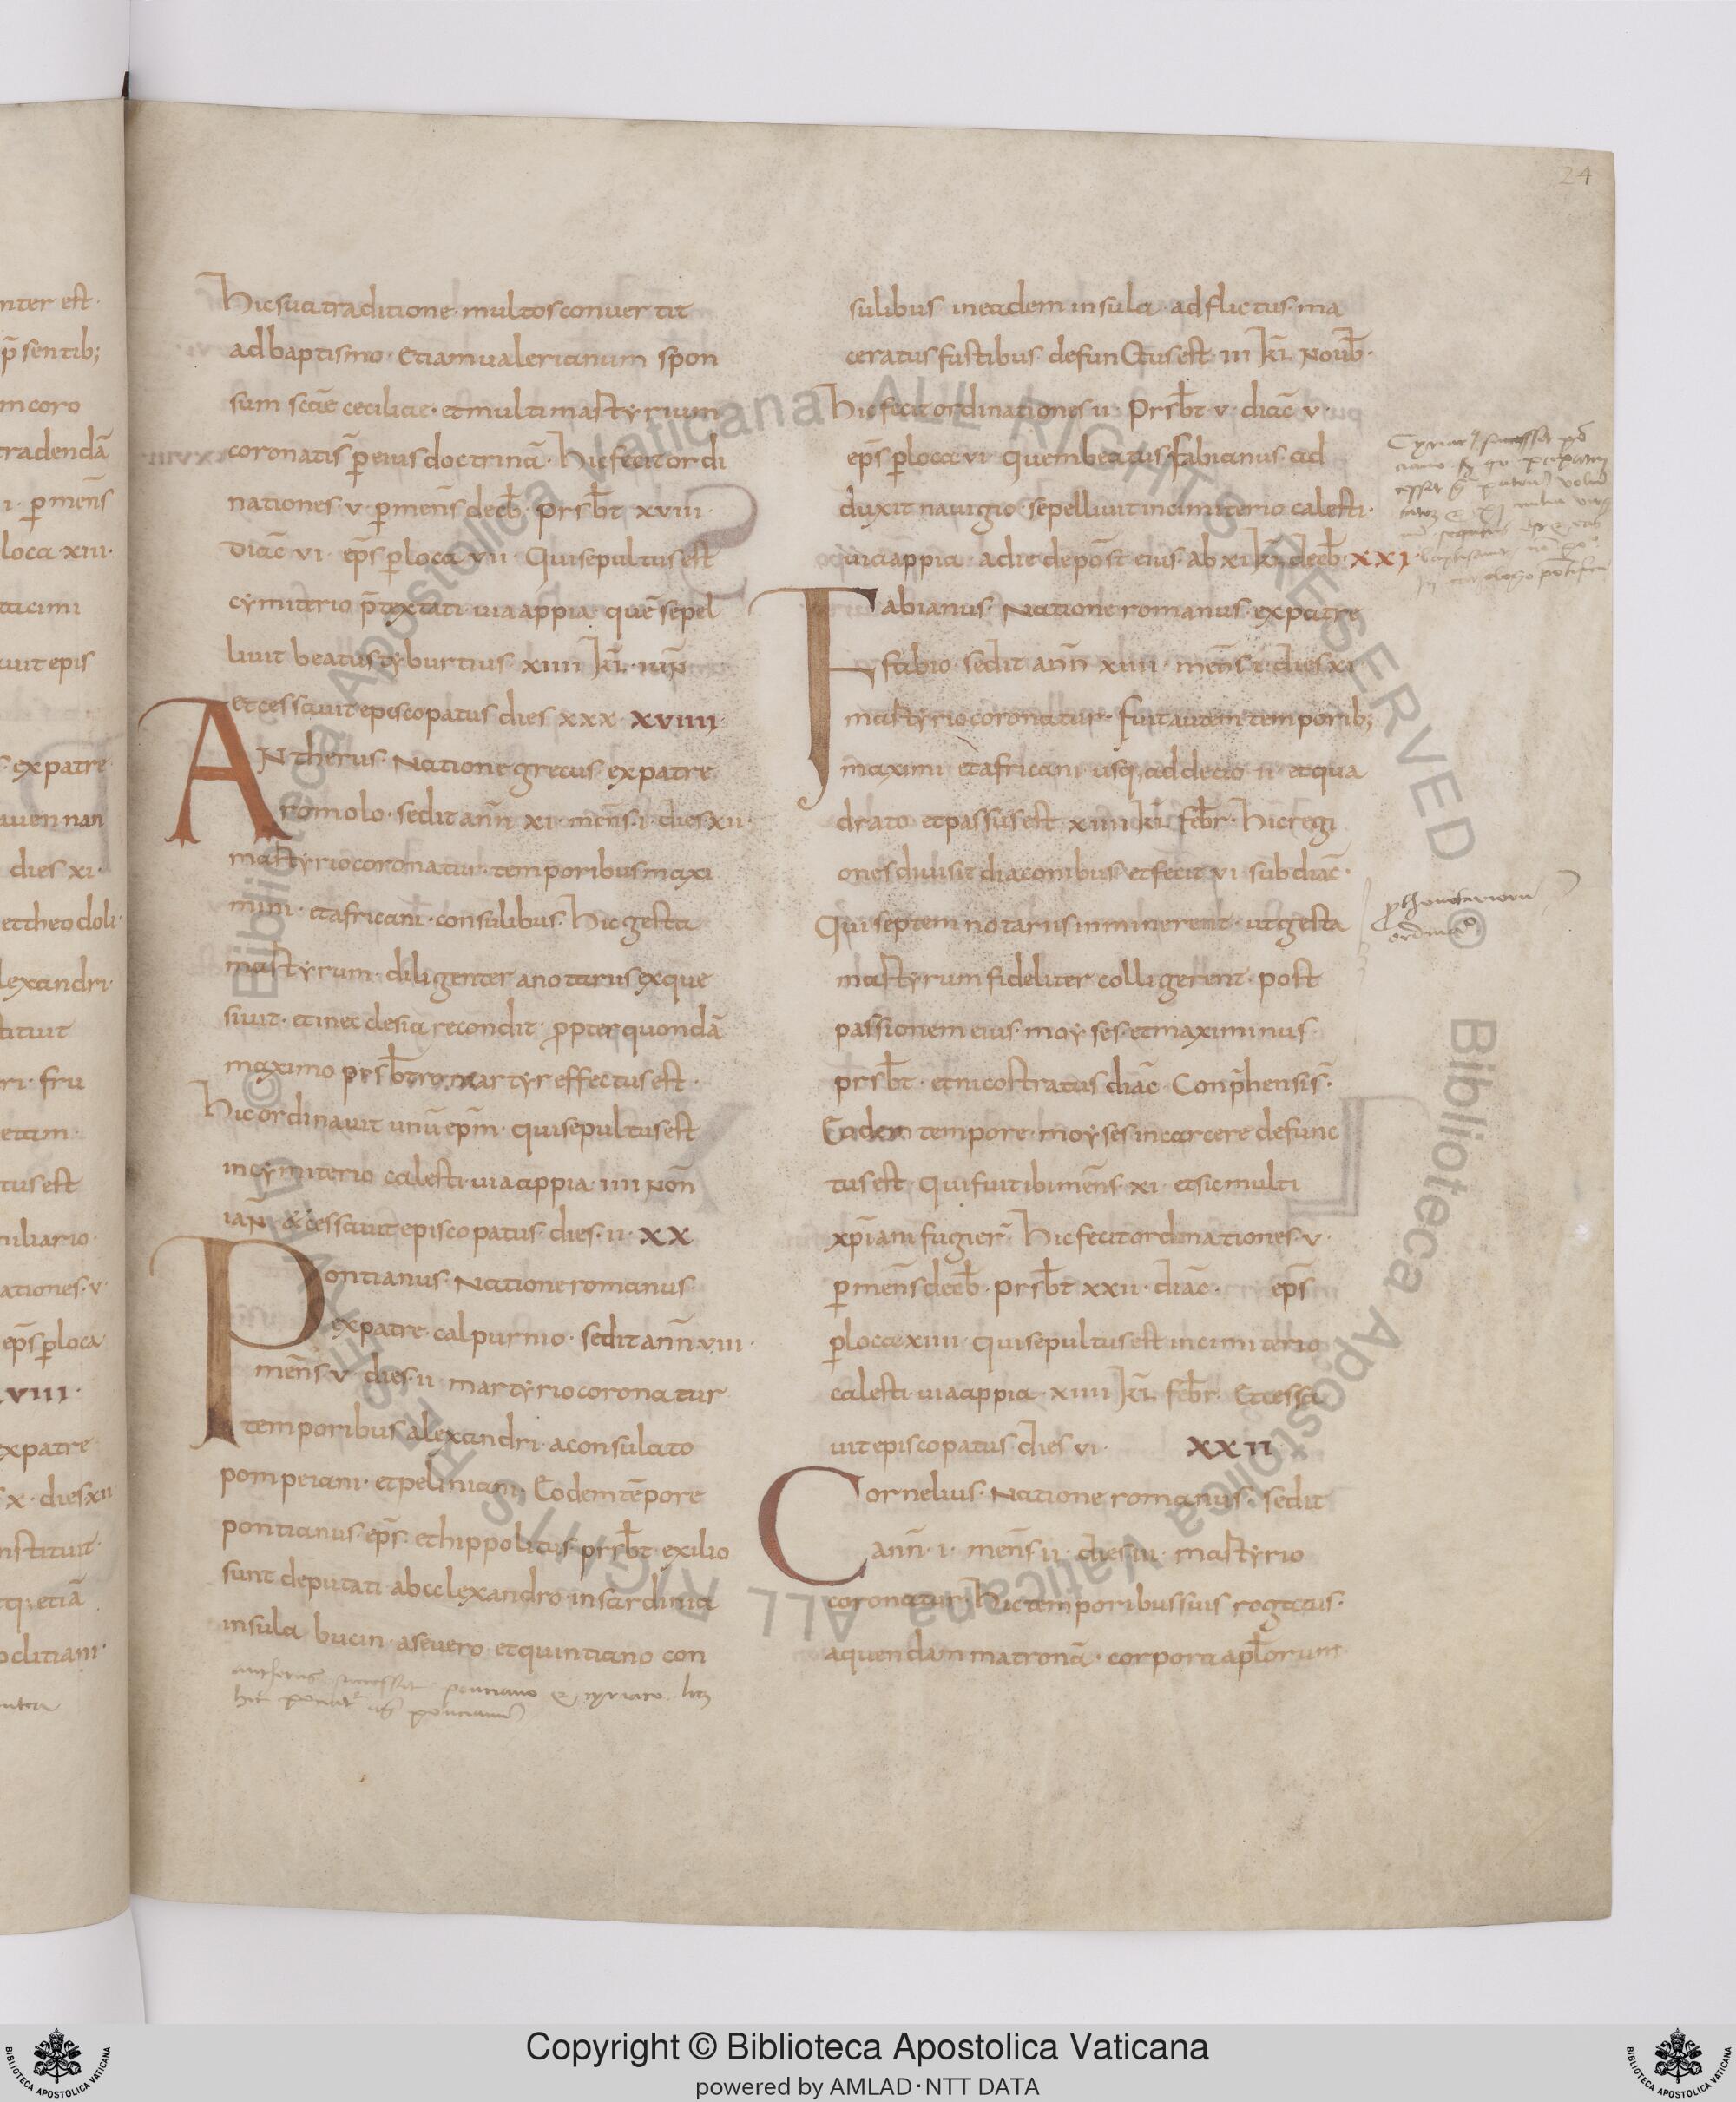 24
nter est·
p̄sentib;
mcoro
tradendā
i· ꝑ mens̄
loca· xiii·
tacimi
uit epis
s· expatre
auennan
dies xi·
ettheodoli·
lexandri·
tituit
ri· fru
etam
tusest
miliario·
ationes·v·
ep̄s ꝑloca
viii·
expatre
x· dies·xii
nstituit·
tq; etiā
oclitiani·
Hicsuatraditione·multosconuertit
adbaptismo· Etiamualerianum spon
sum scāe ceciliae· etmultimartyrium
coronatis p̄eiusdoctrinā· Hicfecitordi
nationes· v· ꝑmens̄ decēb· prsb̄t xviii·
Diac̄ vi· ep̄s ꝑloca vii· Quisepultusest
cymiterio p̄textati· uiaappia· quē sepel
liuit beatustyburtius· xiiii kl̄· iun̄
etcessauitepiscopatus dies xxx· xviiii·
ANtherus· Natione grecus· expatre
romolo· sedit ann̄ xi· mens̄· i· dies·xii·
martyriocoronatur· temporibusmaxi
mini· etafricani· consulibus· Hicgesta
martyrum· diligenter anotariisexque
siuit· etinecclesia recondit· ꝓpterquondā
maximo prsb̄tromartyreffectusest·
Hicordinauit unū ep̄m· quisepultusest
incymiterio calesti· uiaappia· iiii Non̄
iaN̄· & cessauitepiscopatus· dies· ii· xx
Pontianus· Natione romanus·
expatre calpurnio· sedit ann̄ viii·
mens̄ v· dies· ii· martyriocoronatur·
temporibus alexandri· aconsulato
pompeiani· etpeliniani· Eodemtēpore
pontianus· ep̄s· ethippolitus· prsb̄t· exilio
sunt deputati· abalexandro· insardinia
insula bucin· aseuero· etquintiano con
sulibus ineadem insula· adflictus· ma
ceratusfustibus· defunctusest· iii kl̄ Nouēb·
Hicfecitordinationes ii· Prsb̄t v· diac̄ v·
ep̄s ꝑloca vi· quembeatusfabianus· ad
duxit nauigio· sepelliuitincimiterio calesti·
uiaappia· adie depōst eius· ab xi kl̄ decēb· xxi·
Fabianus· Natione romanus· expatre
fabio· sedit ann̄ xiiii· mens̄ i· dies xi
martyriocoronatur· fuitautemtemporib;
maximi etafricani usq; addecio· ii· etqua
drato· etpassusest xiiii kl̄ feb̄r· Hicregi
ones diuisit diaconibus· etfecit vi subdiac̄·
Qui septem notariis inminerent· utgesta
martyrum fideliter colligerent· post
passionem eius· moyses· etmaximinus·
prsb̄t· etnicostratus diac̄· Conp̄hensis̄·
Eodem tempore· moyses incarcere defunc
tusest· Quifuitibi mens̄· xi· etsicmulti
xp̄iani fugier̄· Hicfecitordinationes· v·
ꝑ mens̄ decēb· prsb̄t xxii· diac̄· ep̄s
ꝑloca xiiii· Quisepultusest incimiterio
calesti· uiaappia· xiiii kl̄ feb̄r· Etcessa
uit episcopatus dies vi· xxii·
Cornelius· Natione romanus· sedit
ann̄· i· mens̄ ii· dies iii· martyrio
coronatur· Hictemporibussuis rogatus·
aquendam matronā· corpora apl̄orum
Copyright © Biblioteca Apostolica Vaticana
powered by AMLAD·NTT DATA